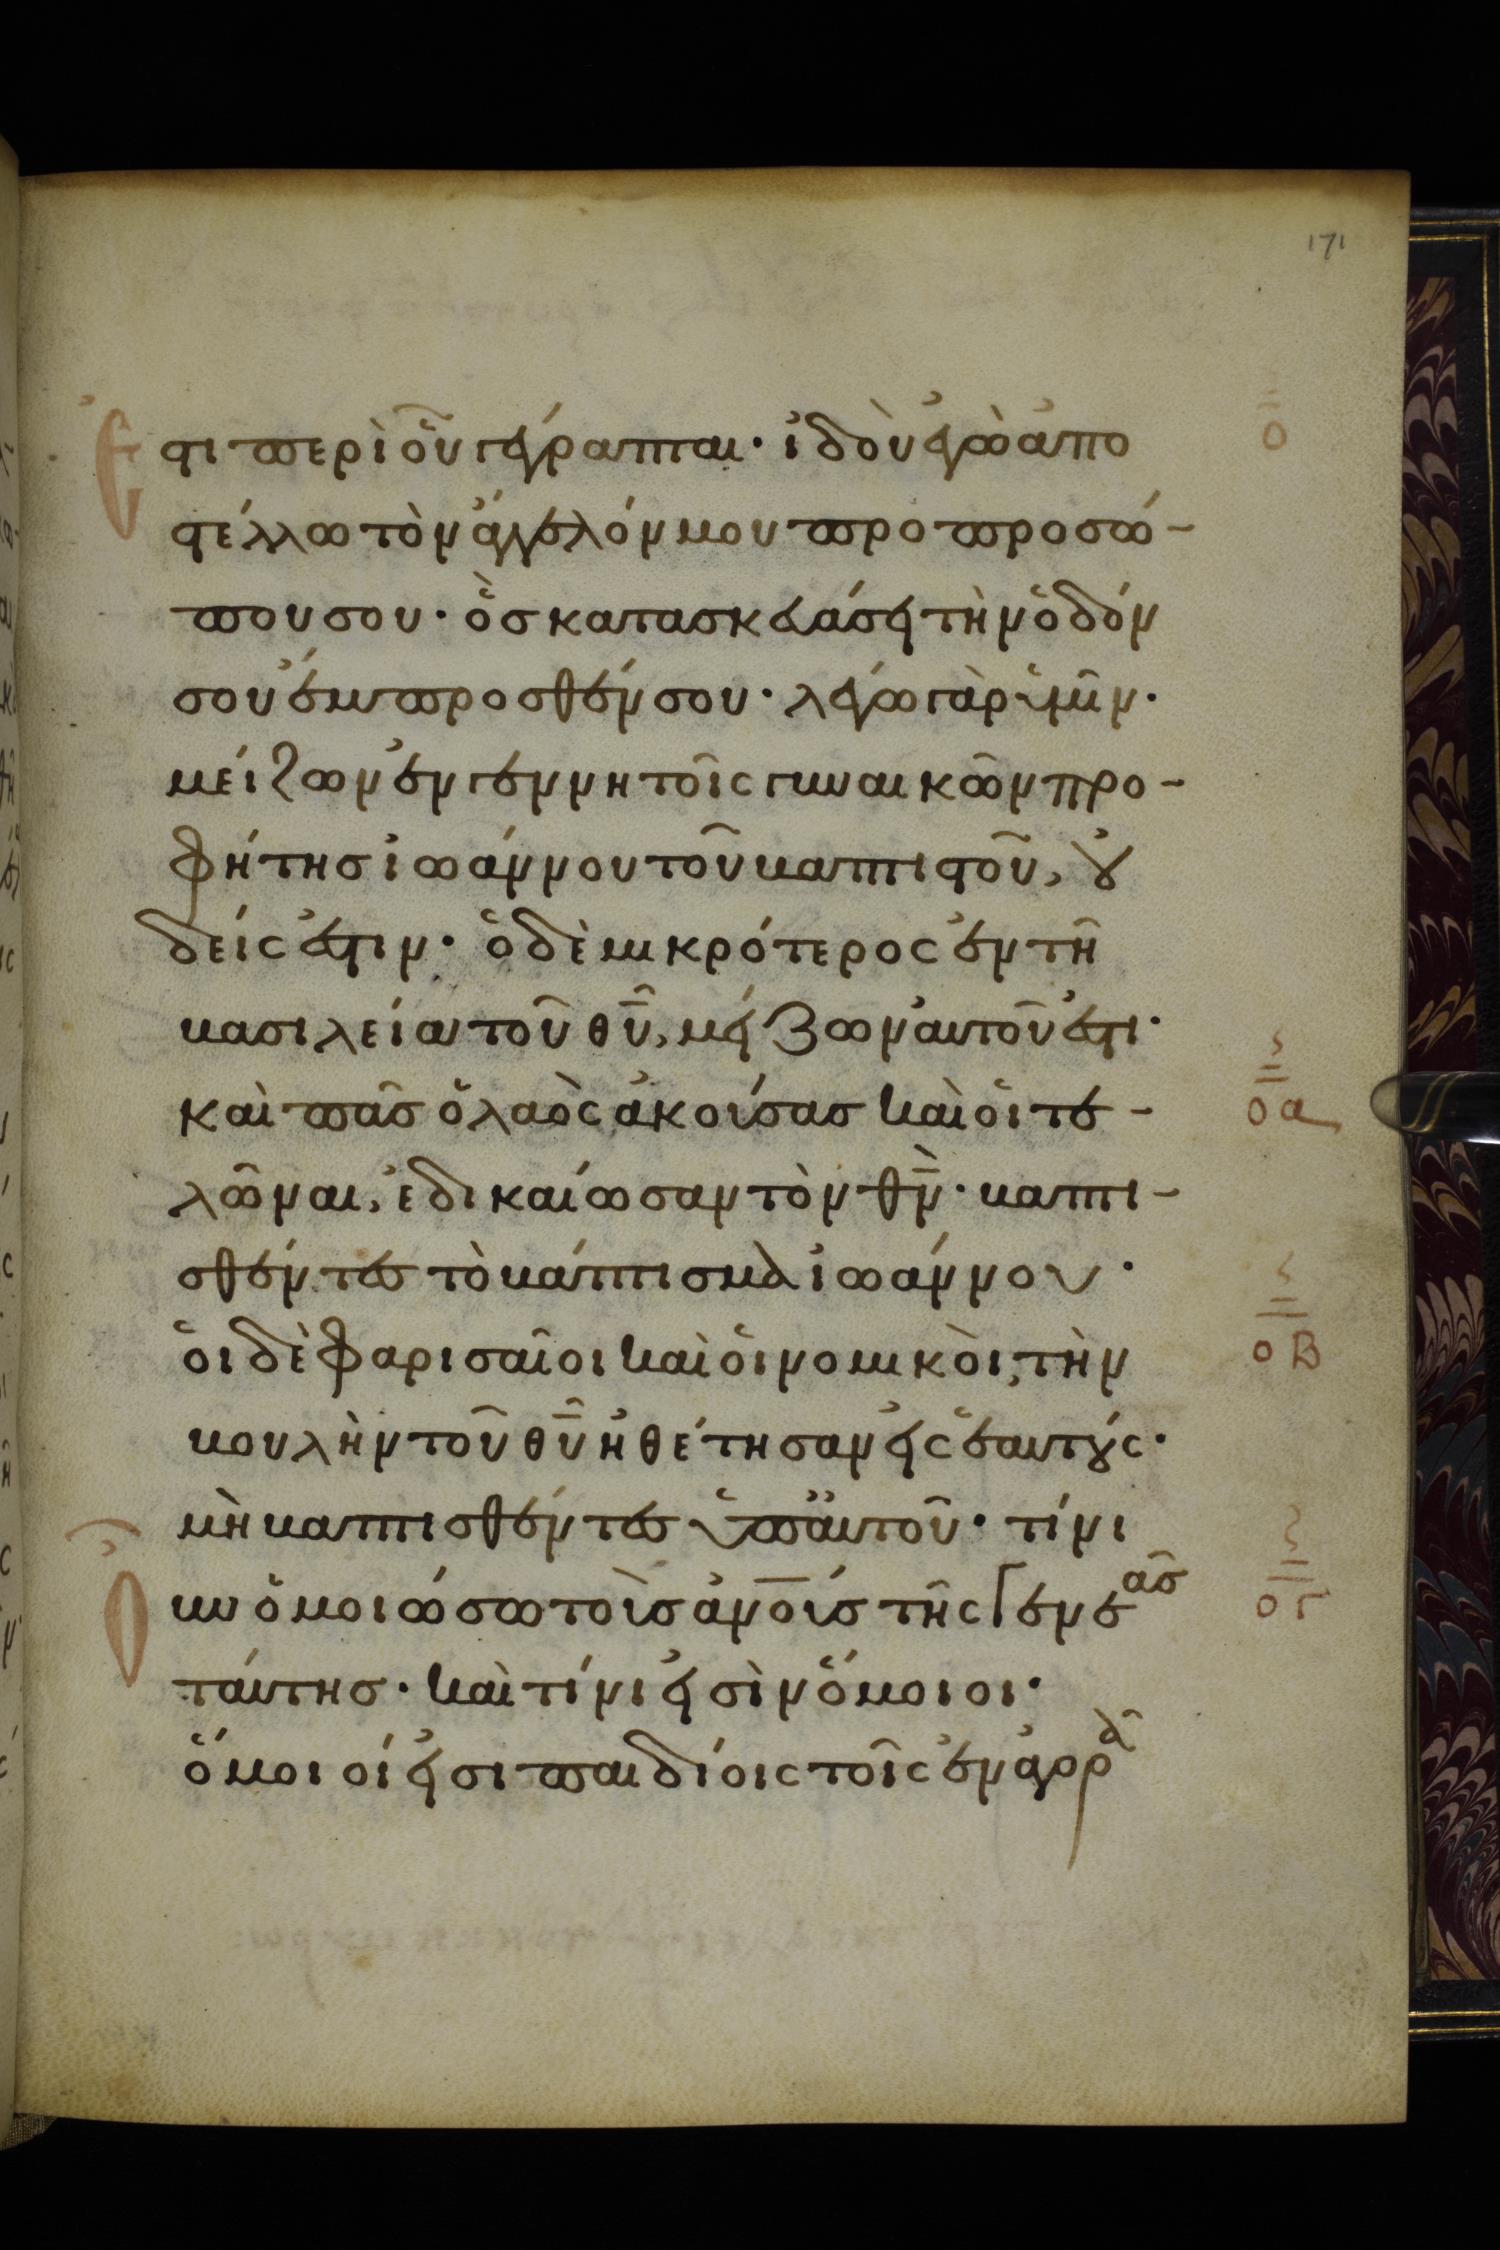 171
Ἐστι περὶ οὗ γέγραπται· ἰδοὺ ἐγὼ ἀπο
στέλλω τὸν ἄγγελόν μου προ προσώ-
που σου· ὃς κατασκευάσει τὴν ὁδόν
σου ἔμπροσθέν σου· λέγω γὰρ ὑμῖν·
μείζων ἐν γεννητοῖς γυναικῶν προ-
φήτης ἰωάννου τοῦ βαπτιστοῦ, οὐ
δείς ἐστιν· ὁ δὲ μικρότερος ἐν τῆ
βασιλεία τοῦ θῦ, μείζων αὐτοῦ ἐστι·
καὶ πᾶς ὁ λαὸς ἀκούσας καὶ οἱ τε-
λῶναι, ἐδικαίωσαν τὸν θν· βαπτι-
σθέντες τὸ βάπτισμα ἰωάννου·
οἱ δὲ φαρισαῖοι καὶ οἱ νομικὸι, τὴν
βουλὴν τοῦ θῦ ἠθέτησαν εἰς ἑαυτούς·
μὴ βαπτισθέντες ὑπ' αὐτοῦ· τίνι
οὖν ὁμοιώσω τοὺς ἀνους τῆς γενεᾶς
ταύτης· καὶ τίνι εἰσὶν ὅμοιοι·
ὅμοιοί εἰσι παιδίοις τοῖς ἐν ἀγορᾶ
ο
οα
οβ
ογ